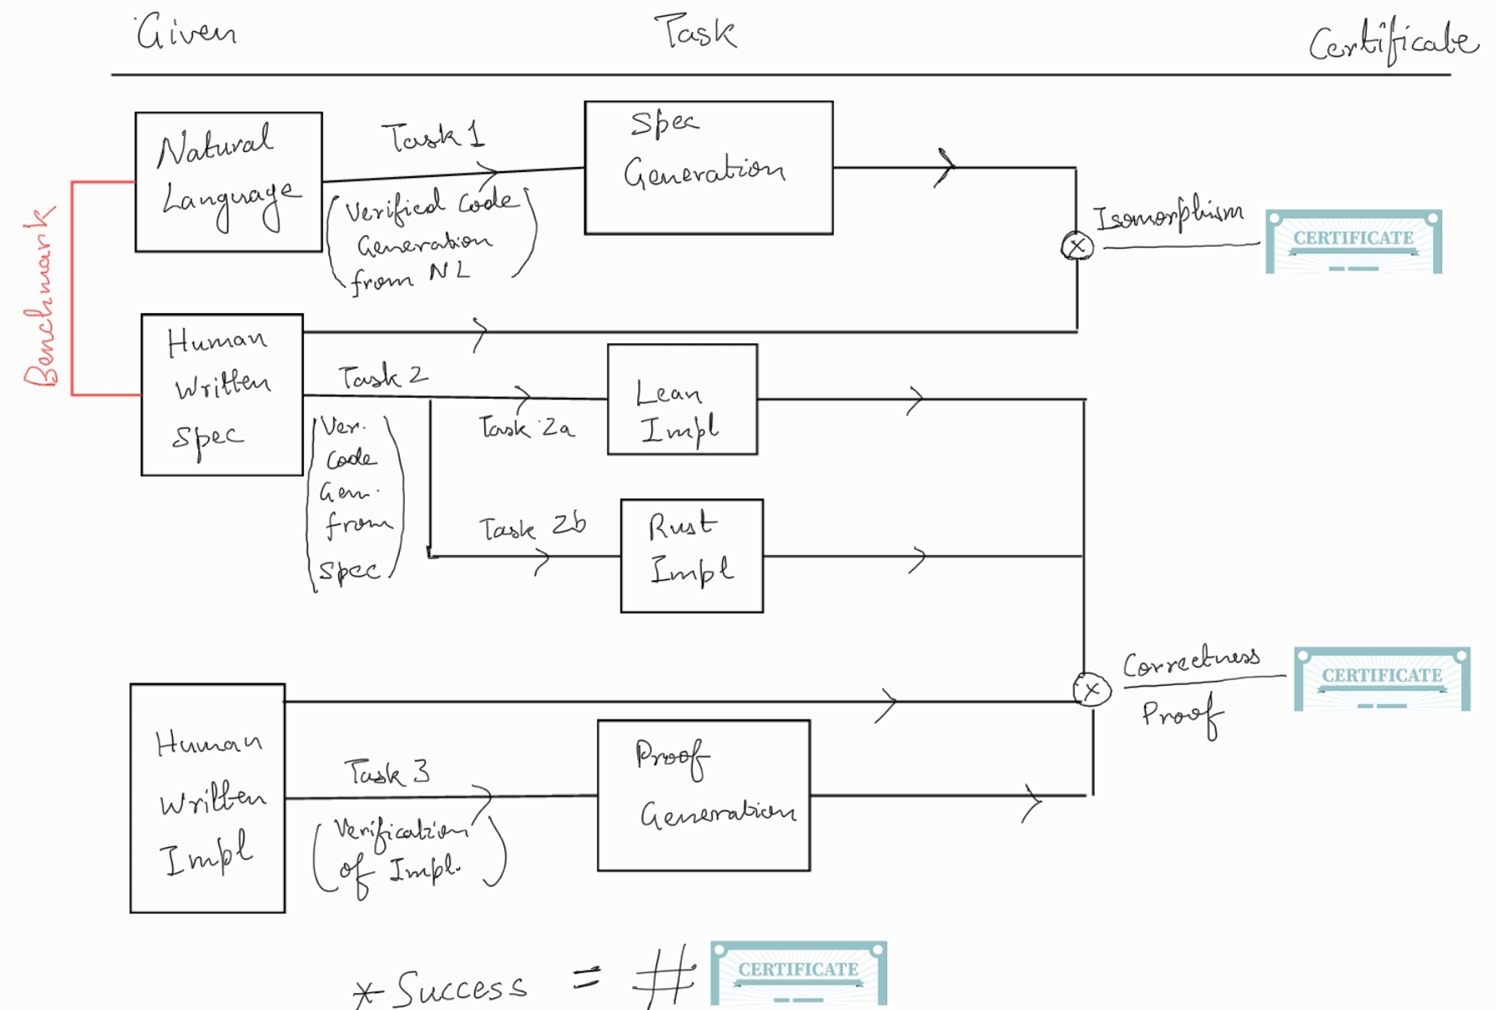 Given
Task
Certificate
Natural
Language
Task 1
(Verified Code
Generation
from NL)
Spec
Generation
Isomorphism
CERTIFICATE
Benchmark
Human
Written
Spec
Task 2
(Ver.
Code
Gen.
from
Spec)
Task 2a
Lean
Impl
Task 2b
Rust
Impl
Correctness
Proof
CERTIFICATE
Human
Written
Impl
Task 3
(Verification
of Impl.)
Proof
Generation
*Success = #
CERTIFICATE